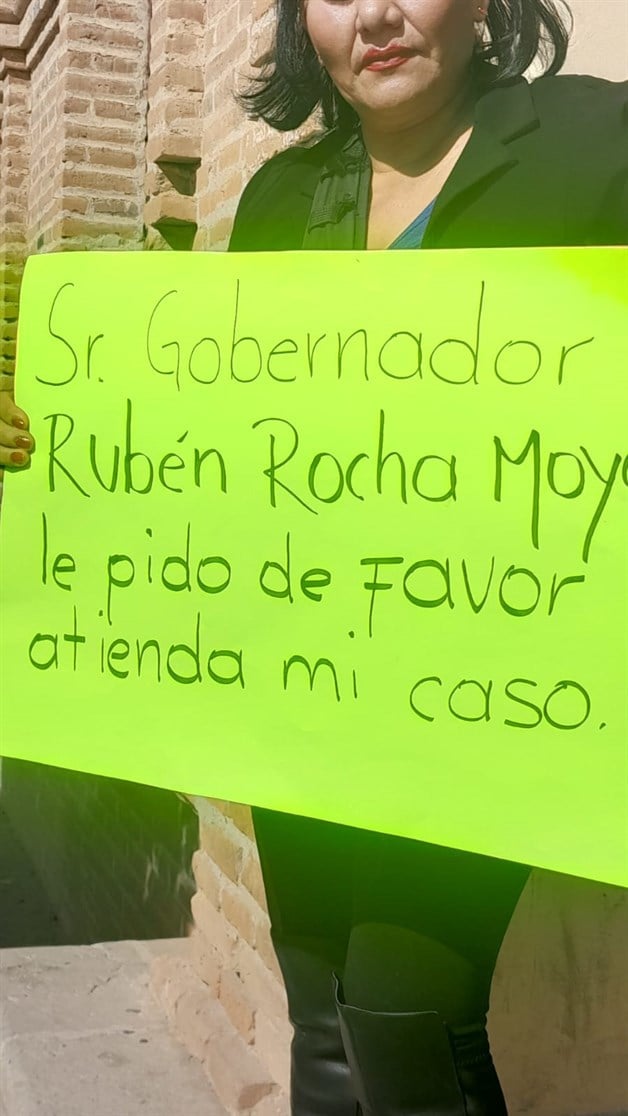 Sr. Gobernador
Rubén Rocha Moya
le pido de Favor
atienda mi caso.